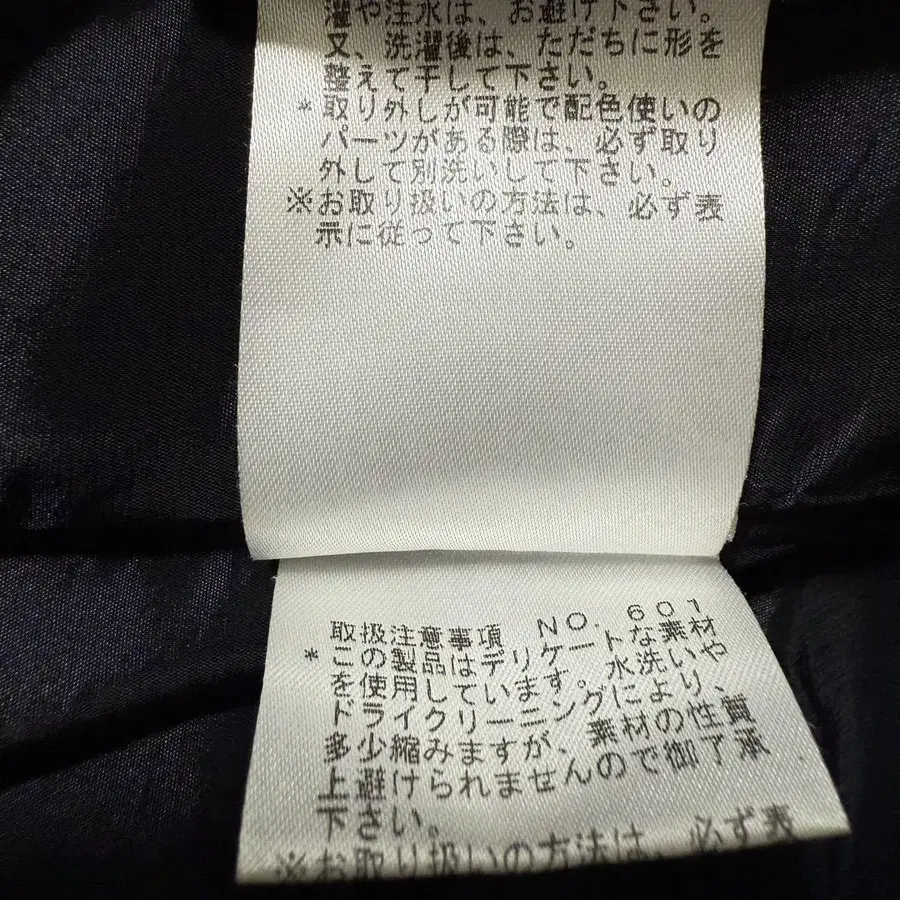 濯や注水は、お避け下さい。
又、洗濯後は、ただちに形を
整えて干して下さい。
*取り外しが可能で配色使いの
パーツがある際は、必ず取り
外して別洗いして下さい。
※お取り扱いの方法は、必ず表
示に従って下さい。
取扱注意事項 NO. 601
*この製品はデリケートな素材
を使用しています。水洗いや
ドライクリーニングにより、
多少縮みますが、素材の性質
上避けられませんので御了承
下さい。
※お取り扱いの方法は、必ず表